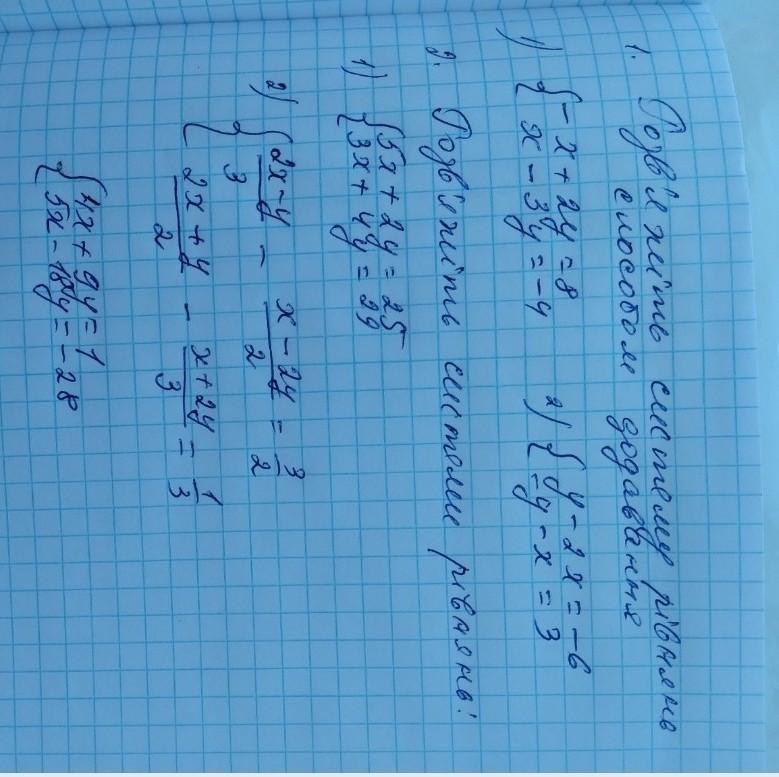 1. Розв'яжіть систему рівнянь
способом додавання
1) { - x + 2y = 8      2) { y - 2x = -6
x - 3y = -4      -y - x = 3
2. Розв'яжіть системи рівнянь:
1) { 5x + 2y = 25
3x + 4y = 29
2) { (2x - y)/3 - (x - 2y)/2 = 3/2
{ (2x + y)/2 - (x + 2y)/3 = 1/3
{ 4x + 9y = 1
5x - 18y = -28